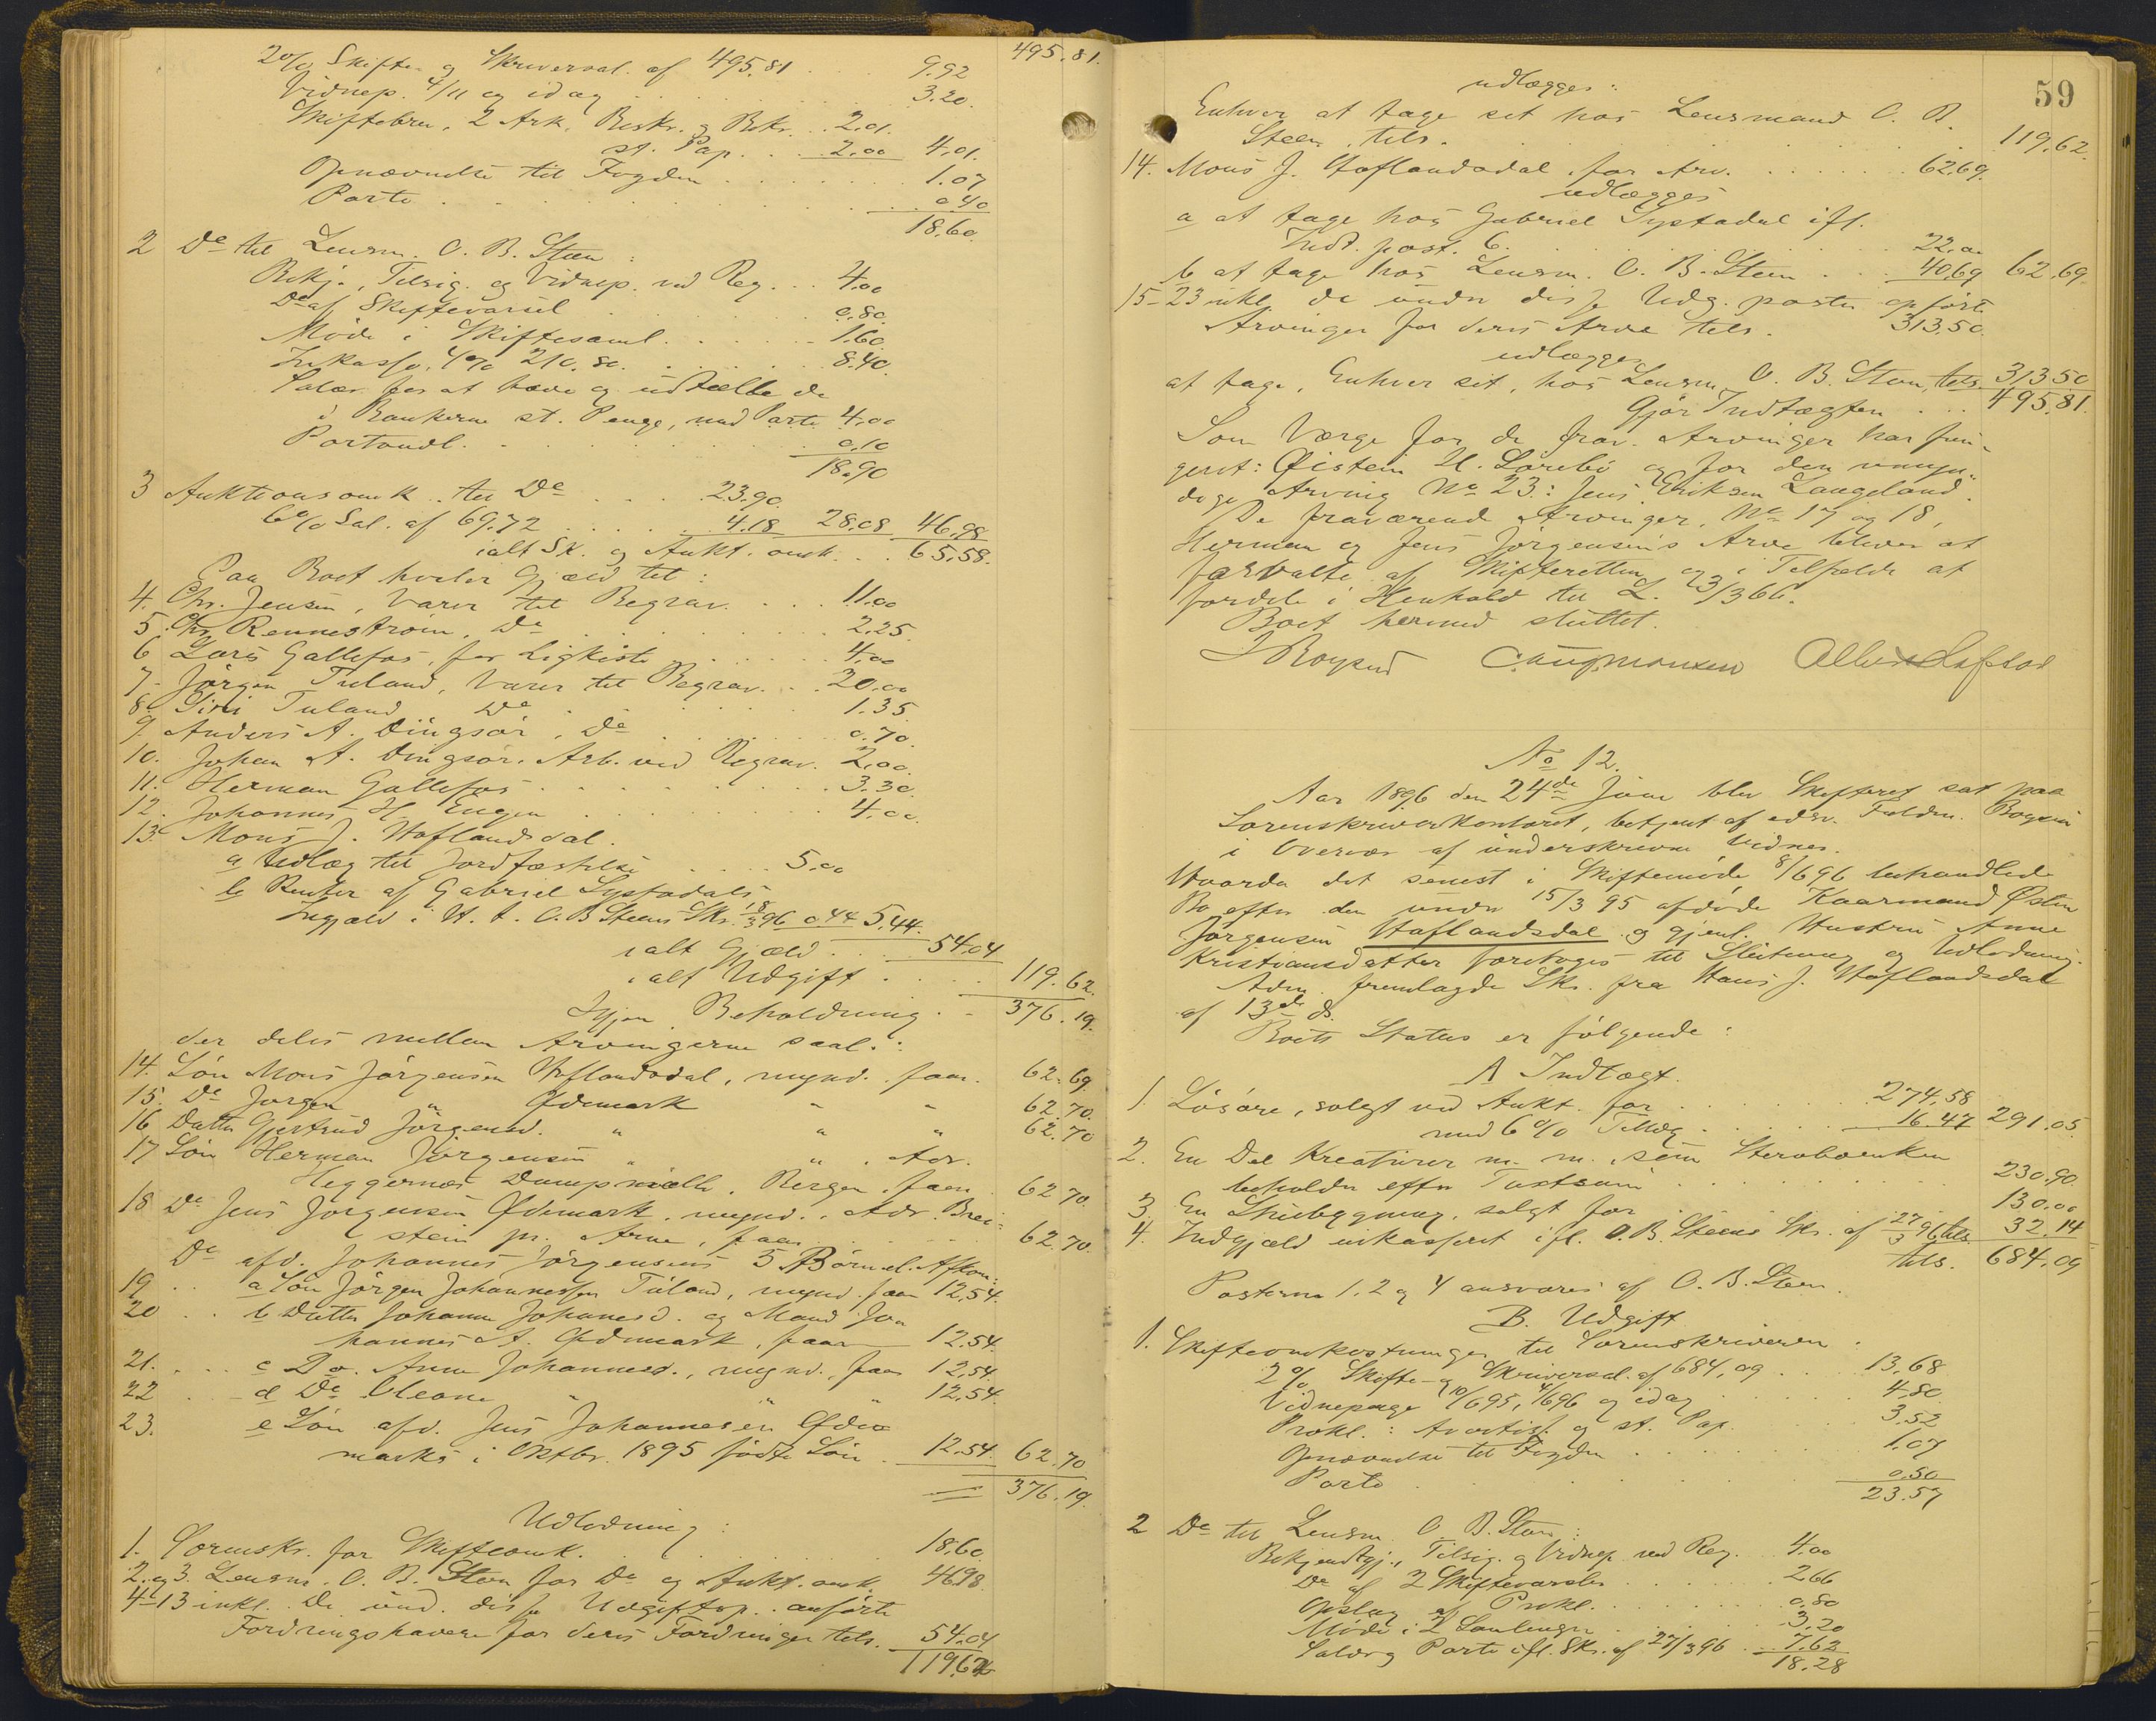 495.81.
2% Skifte- og Skriversal. af 495.81 . . . 9.92
Vidnep. 4/11 og idag . . . 3.20.
Skiftebrev, 2 Ark, Beskr. og Bekr. . . 2.01.
st. Pap. . . . 2.00 4.01.
Opnævnelse til Fogden . . . 1.07
Porto . . . 0.40
18.60.
2 Do til Lensm. O. B. Steen :
Bekj., Tilsig. og Vidnep. ved Reg. . . 4.00
Do af Skiftevarsel . . . 0.80.
Møde i Skiftesaml. . . . 1.60.
Inkasso, 4% 210.80. . . . 8.40.
Salær for at hæve og udtælle de
i Bankerne st. Penge, med Porto 4.00
Portoudl. . . . 0.10
18.90
3 Auktionsomk. til Do . . . 23.90.
6% Sal. af 69.72 . . . 4.18 28.08 46.98
ialt Sk. og Aukt. omk. . . 65.58.
Paa Boet hviler Gjæld til :
4. Chr. Jensen, Varer til Begrav. . . . 11.00
5. Chr. Rennestrøm, Do . . . 2.25.
6 Lars Gallefos, for Ligkiste . . . 4.00
7. Jørgen Tuland, Varer til Begrav. . . 20.00
8. Siri Tuland Do . . . 1.35.
9. Anders A. Dingsør, Do . . . 0.70.
10. Johan A. Dingsør. Arb. ved Begrav. 2.00.
11. Herman Gallefos . . . 3.30.
12. Johannes H. Engen . . . 4.00.
13. Mons J. Haflandsdal.
a Udlæg til Jordfæstelse . . . 5.00
b Renter af Gabriel Systadals
Indgjæld i H. t. O. B Steens Skr. 18/3 96 0.44 5.44.
ialt Gjæld . . . 54.04
ialt Udgift . . . 119.62.
Igjen Beholdning . . 376.19.
der deles mellem Arvingerne saal. :
14. Søn Mons Jørgensen Haflandsdal, mynd. faar. 62.69.
15. Do Jørgen " Ødemark " " 62.70.
16 Datter Gjertrud Jørgensd. " " " 62.70
17 Søn Herman Jørgensen " " . Adr.
Heggernes Dampmølle, Bergen, faar 62.70.
18 Do Jens Jørgensen Ødemark, mynd., Adr. Brei-
stein pr. Arne, faar . . . 62.70.
Do afd. Johannes Jørgensens 5 Børn el. Afkom:
19 . . a Søn Jørgen Johannessen Tuland, mynd. faar 12.54.
20 . . b Datter Johanne Johannesd. og Mand Jo-
hannes A. Ødemark, faar 12.54.
21. . . c Do. Anne Johannesd., mynd., faar 12.54.
22 . . d Do Oleane " " " 12.54.
23. e Søn afd. Jens Johannesen Øde-
marks i Oktbr. 1895 fødte Søn . 12.54. 62.70
376.19.
Udlodning :
1. Sorenskr. for Skifteomk. . . . 18.60.
2. og 3. Lensm. O. B. Steen for Do og Aukt. omk. 46.98.
4-13 inkl. De und. disse Udgiftsp. anførte
Fordringshavere for deres Fordringer tils. 54.04
119.62
59
udlægges :
Enhver at tage sit hos Lensmand O. B.
Steen, tils. . . . 119.62.
14. Mons J. Haflandsdal for Arv. . . . 62.69.
udlægges
a at tage hos Gabriel Systadal ifl.
Indt. post. 6. . . . 22.00
b at tage hos Lensm. O. B. Steen . . . 40.69 62.69.
15-23 inkl. de under disse Udg. poster opførte
Arvinger for deres Arve tils. 313.50.
udlægges
at tage, Enhver sit, hos Lensm. O. B. Steen, tils. 313.50
Gjør Indtægten . . . 495.81.
Som Værge for de frav. Arvinger har fun-
geret: Øistein H. Lørebø og for den umyn-
dige Arving No 23: Jens Eriksen Langeland.
De fraværende Arvinger, No 17 og 18,
Herman og Jens Jørgensens Arve bliver at
forvalte af Skifteretten og i Tilfælde at
fordele i Henhold til L. 23/3 66.
Boet hermed sluttet.
J Boysen
No 12.
Aar 1896 den 24de Juni blev Skifteret sat paa
Sorenskriverkontoret, betjent af edsv. Fuldm. Boysen
i Overvær af underskrevne Vidner.
Hvorda det senest i Skiftemøde 8/6 96 behandlede
Bo efter den under 15/3 95 afdøde Kaarmand Østen
Jørgensen Haflandsdal og gjenl. Hustru Anne
Kristiansdatter foretoges til Slutning og Udlodning.
Adm. fremlagde Skr. fra Hans J. Haflandsdal
af 13de ds.
Boets Status er følgende :
A Indtægt.
1. Løsøre, solgt ved Aukt. for . . . 274.58
med 6% Tillæg . . . 16.47 291.05.
2. En Del Kreaturer m. m., som Stervboenken
beholder efter Taxtsum . . . 230.90.
3. En Stuebygning, solgt for . . . 130.00
4. Indgjæld inkasseret ifl. O. B. Steens Skr. af 27/3 96 tils. 32.14
tils. 684.09
Posterne 1, 2 og 4 ansvares af O. B. Steen.
B. Udgift
1. Skifteomkostninger til Sorenskriveren :
2% Skifte- og Skriversal. af 684.09 . . . 13.68
Vidnepenge 10/6 95, 4/6 96 og idag . . . 4.80
Prokl.: Avertiss. og st. Pap. . . . 3.52
Opnævnelse til Fogden . . . 1.07
Porto . . . 0.50
23.57
2 Do til Lensm O. B. Steen :
Bekjendtgj., Tilsig. og Vidnep. ved Reg. . 4.00
Do af 2 Skiftevarsler . . . 2.66
Opslag af Prokl. . . . 0.80
Møde i 2 Samlinger . . . 3.20
Salær og Porto ifl. Skr. af 27/3 96 . . 7.62
18.28